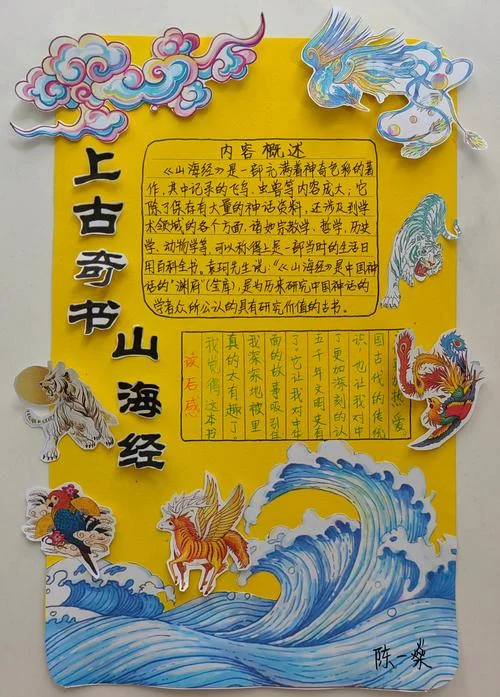 上古奇书
山海经
内容概述
《山海经》方是一部充满着神奇色彩的著
作,其中记录的飞鸟、虫兽等内容成大;它
除了保存有大量的神话资料,还涉及到学
术领域的各个方面,诸如宗教学、哲学、历史
学、动物学等,可以称得上是一部当时的生活日
用百科全书,袁珂先生说:“《山海经》是中国神
话的“渊府”(宝库),是为历来研究中国神话的
学者众所公认的具有研究价值的古书。
读后感
我觉得这本书
真的太有趣了。
我深深地被里
面的故事吸引住
了。它让我对中华
五千年文明史有
了更加深刻的认
识,也让我对中
国古代的传统
热爱
陈一燊